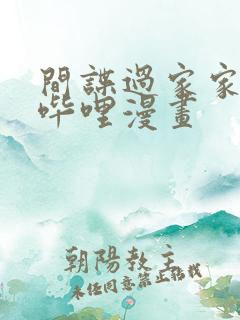 間諜過家家
哔哩漫畫
朝陽教主
未任同意禁止轉載